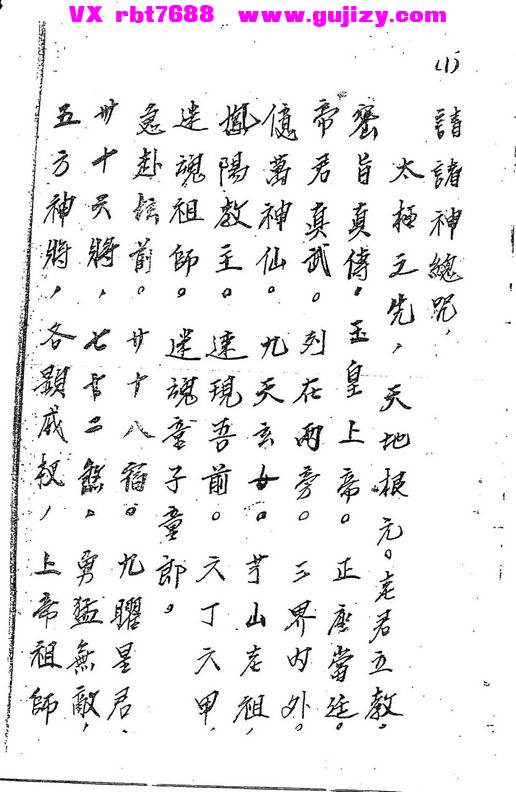 VX rbt7688 www.gujizy.com
(1)
請諸神總咒，
太極之先，天地根元。老君立教。
密旨真傳。玉皇上帝。正座當廷。
帝君真武。列在兩旁。三界內外。
億萬神仙。九天玄女。茅山老祖，
鳳陽教主。速現吾前。六丁六甲，
迷魂祖師。迷魂童子童郎。
急赴壇前。廿十八宿。九曜星君、
卅十天將，七十二煞。勇猛無敵，
五方神將，各顯威权，上帝祖師